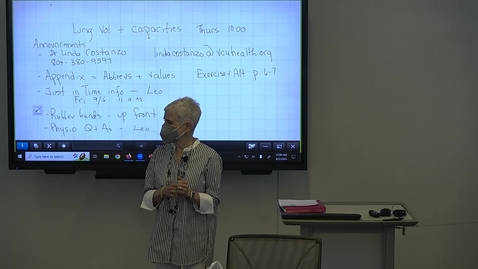 Lung Vol + Capacities Thurs 10:00
Announcements
- Dr. Linda Costanzo linda.costanzo@vcuhealth.org
804-380-9597
- Appendix - Abbrevs + values Exercise + Alt p 6-7
- Just in Time info - Leo
Fri 9/6 11 am
- Rubber bands - up front
- Physio Q + As - Leo
Type here to search